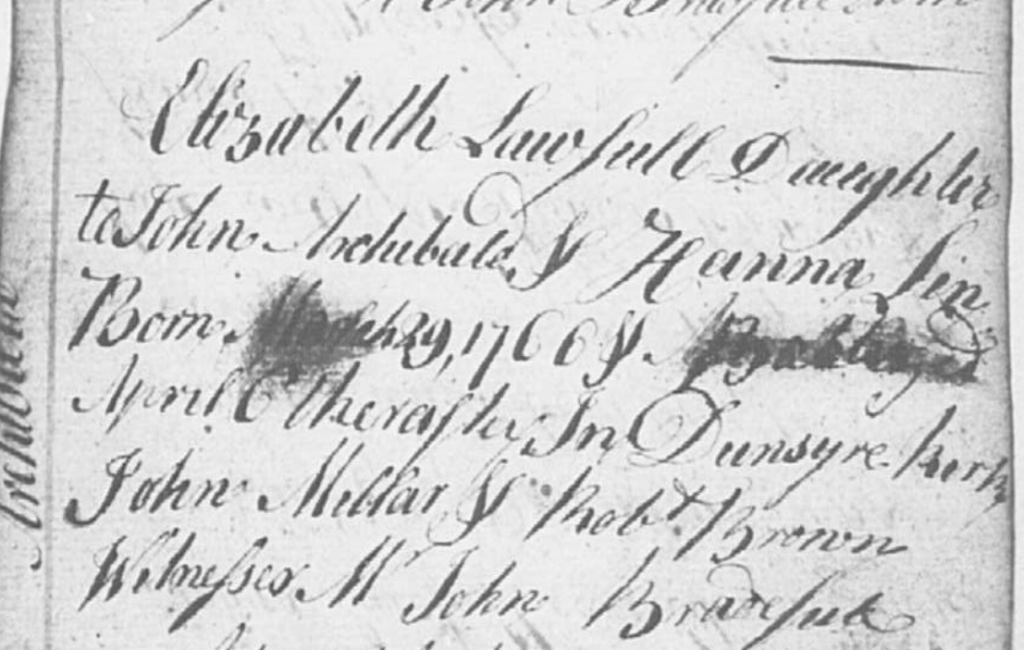 Elizabeth Lawfull Daughter
to John Archibald & Hanna Lin
Born March 29, 1766 & Babtized
April 6 therafter In Dunsyre kirk
John Millar & Robt Brown
Witnesses Mr John Bradefute